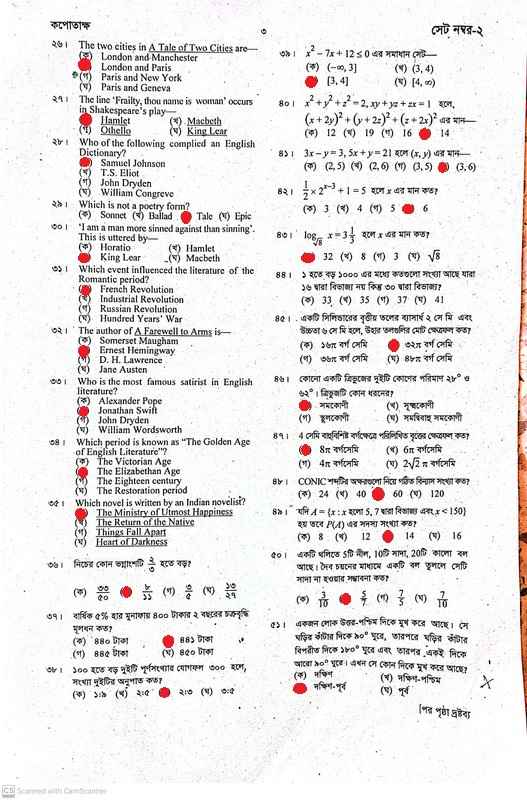 কপোতাক্ষ
৩
সেট নম্বর-২
২৬। The two cities in A Tale of Two Cities are—
(ক) London and Manchester
London and Paris
(গ) Paris and New York
(ঘ) Paris and Geneva
২৭। The line 'Frailty, thou name is woman' occurs
in Shakespeare's play—
Hamlet (খ) Macbeth
(গ) Othello (ঘ) King Lear
২৮। Who of the following complied an English
Dictionary?
Samuel Johnson
(খ) T.S. Eliot
(গ) John Dryden
(ঘ) William Congreve
২৯। Which is not a poetry form?
(ক) Sonnet (খ) Ballad Tale (ঘ) Epic
৩০। 'I am a man more sinned against than sinning'.
This is uttered by—
(ক) Horatio (খ) Hamlet
King Lear (ঘ) Macbeth
৩১। Which event influenced the literature of the
Romantic period?
French Revolution
(খ) Industrial Revolution
(গ) Russian Revolution
(ঘ) Hundred Years' War
৩২। The author of A Farewell to Arms is—
(ক) Somerset Maugham
Ernest Hemingway
(গ) D. H. Lawrence
(ঘ) Jane Austen
৩৩। Who is the most famous satirist in English
literature?
(ক) Alexander Pope
Jonathan Swift
(গ) John Dryden
(ঘ) William Wordsworth
৩৪। Which period is known as "The Golden Age
of English Literature"?
(ক) The Victorian Age
The Elizabethan Age
(গ) The Eighteen century
(ঘ) The Restoration period
৩৫। Which novel is written by an Indian novelist?
The Ministry of Utmost Happiness
(খ) The Return of the Native
(গ) Things Fall Apart
(ঘ) Heart of Darkness
৩৬। নিচের কোন ভগ্নাংশটি ২/৩ হতে বড়?
(ক) ৩৩/৫০ ৮/১১ (গ) ৩/৫ (ঘ) ১৩/২৭
৩৭। বার্ষিক ৫% হার মুনাফায় ৪০০ টাকার ২ বছরের চক্রবৃদ্ধি
মূলধন কত?
(ক) ৪৪০ টাকা ৪৪১ টাকা
(গ) ৪৪৫ টাকা (ঘ) ৪৫০ টাকা
৩৮। ১০০ হতে বড় দুইটি পূর্ণসংখ্যার যোগফল ৩০০ হলে,
সংখ্যা দুইটির অনুপাত কত?
(ক) ১:৯ (খ) ২:৫ ২:৩ (ঘ) ৩:৫
৩৯। x² − 7x + 12 ≤ 0 এর সমাধান সেট—
(ক) (−∞, 3] (খ) (3, 4)
[3, 4] (ঘ) [4, ∞)
৪০। x² + y² + z² = 2, xy + yz + zx = 1 হলে,
(x + 2y)² + (y + 2z)² + (z + 2x)² এর মান—
(ক) 12 (খ) 19 (গ) 16 14
৪১। 3x − y = 3, 5x + y = 21 হলে (x, y) এর মান—
(ক) (2, 5) (খ) (2, 6) (গ) (3, 5) (3, 6)
৪২। 1/2 × 2ˣ⁻³ + 1 = 5 হলে x এর মান কত?
(ক) 3 (খ) 4 (গ) 5 6
৪৩। log√8 x = 3 1/3 হলে x এর মান কত?
32 (খ) 8 (গ) 3 (ঘ) √8
৪৪। ১ হতে বড় ১০০০ এর মধ্যে কতগুলো সংখ্যা আছে যারা
১৬ দ্বারা বিভাজ্য নয় কিন্তু ৩০ দ্বারা বিভাজ্য?
(ক) 33 (খ) 35 (গ) 37 (ঘ) 41
৪৫। একটি সিলিন্ডারের বৃত্তীয় তলের ব্যাসার্ধ ২ সে মি এবং
উচ্চতা ৬ সে মি হলে, উহার তলগুলির মোট ক্ষেত্রফল কত?
(ক) ১৬π বর্গ সেমি ৩২π বর্গ সেমি
(গ) ৩৬π বর্গ সেমি (ঘ) ৪৮π বর্গ সেমি
৪৬। কোনো একটি ত্রিভুজের দুইটি কোণের পরিমাণ ২৮° ও
৬২°। ত্রিভুজটি কোন ধরনের?
সমকোণী (খ) সূক্ষ্মকোণী
(গ) স্থূলকোণী (ঘ) সমদ্বিবাহু সমকোণী
৪৭। 4 সেমি বাহুবিশিষ্ট বর্গক্ষেত্রে পরিলিখিত বৃত্তের ক্ষেত্রফল কত?
8π বর্গসেমি (খ) 6π বর্গসেমি
(গ) 4π বর্গসেমি (ঘ) 2√2 π বর্গসেমি
৪৮। CONIC শব্দটির অক্ষরগুলো নিয়ে গঠিত বিন্যাস সংখ্যা কত?
(ক) 24 (খ) 40 60 (ঘ) 120
৪৯। যদি A = {x : x হলো 5, 7 দ্বারা বিভাজ্য এবং x < 150}
হয় তবে P(A) এর সদস্য সংখ্যা কত?
(ক) 8 (খ) 12 14 (ঘ) 16
৫০। একটি থলিতে 5টি নীল, 10টি সাদা, 20টি কালো বল
আছে। দৈব চয়নের মাধ্যমে একটি বল তুললে সেটি
সাদা না হওয়ার সম্ভাবনা কত?
(ক) 3/10 5/7 (গ) 7/5 (ঘ) 7/10
৫১। একজন লোক উত্তর-পশ্চিম দিকে মুখ করে আছে। সে
ঘড়ির কাঁটার দিকে ৯০° ঘুরে, তারপরে ঘড়ির কাঁটার
বিপরীত দিকে ১৮০° ঘুরে এবং তারপর একই দিকে
আরো ৯০° ঘুরে। এখন সে কোন দিকে মুখ করে আছে?
(ক) দক্ষিণ (খ) দক্ষিণ-পশ্চিম
দক্ষিণ-পূর্ব (ঘ) পূর্ব
[পর পৃষ্ঠা দ্রষ্টব্য
CS Scanned with CamScanner